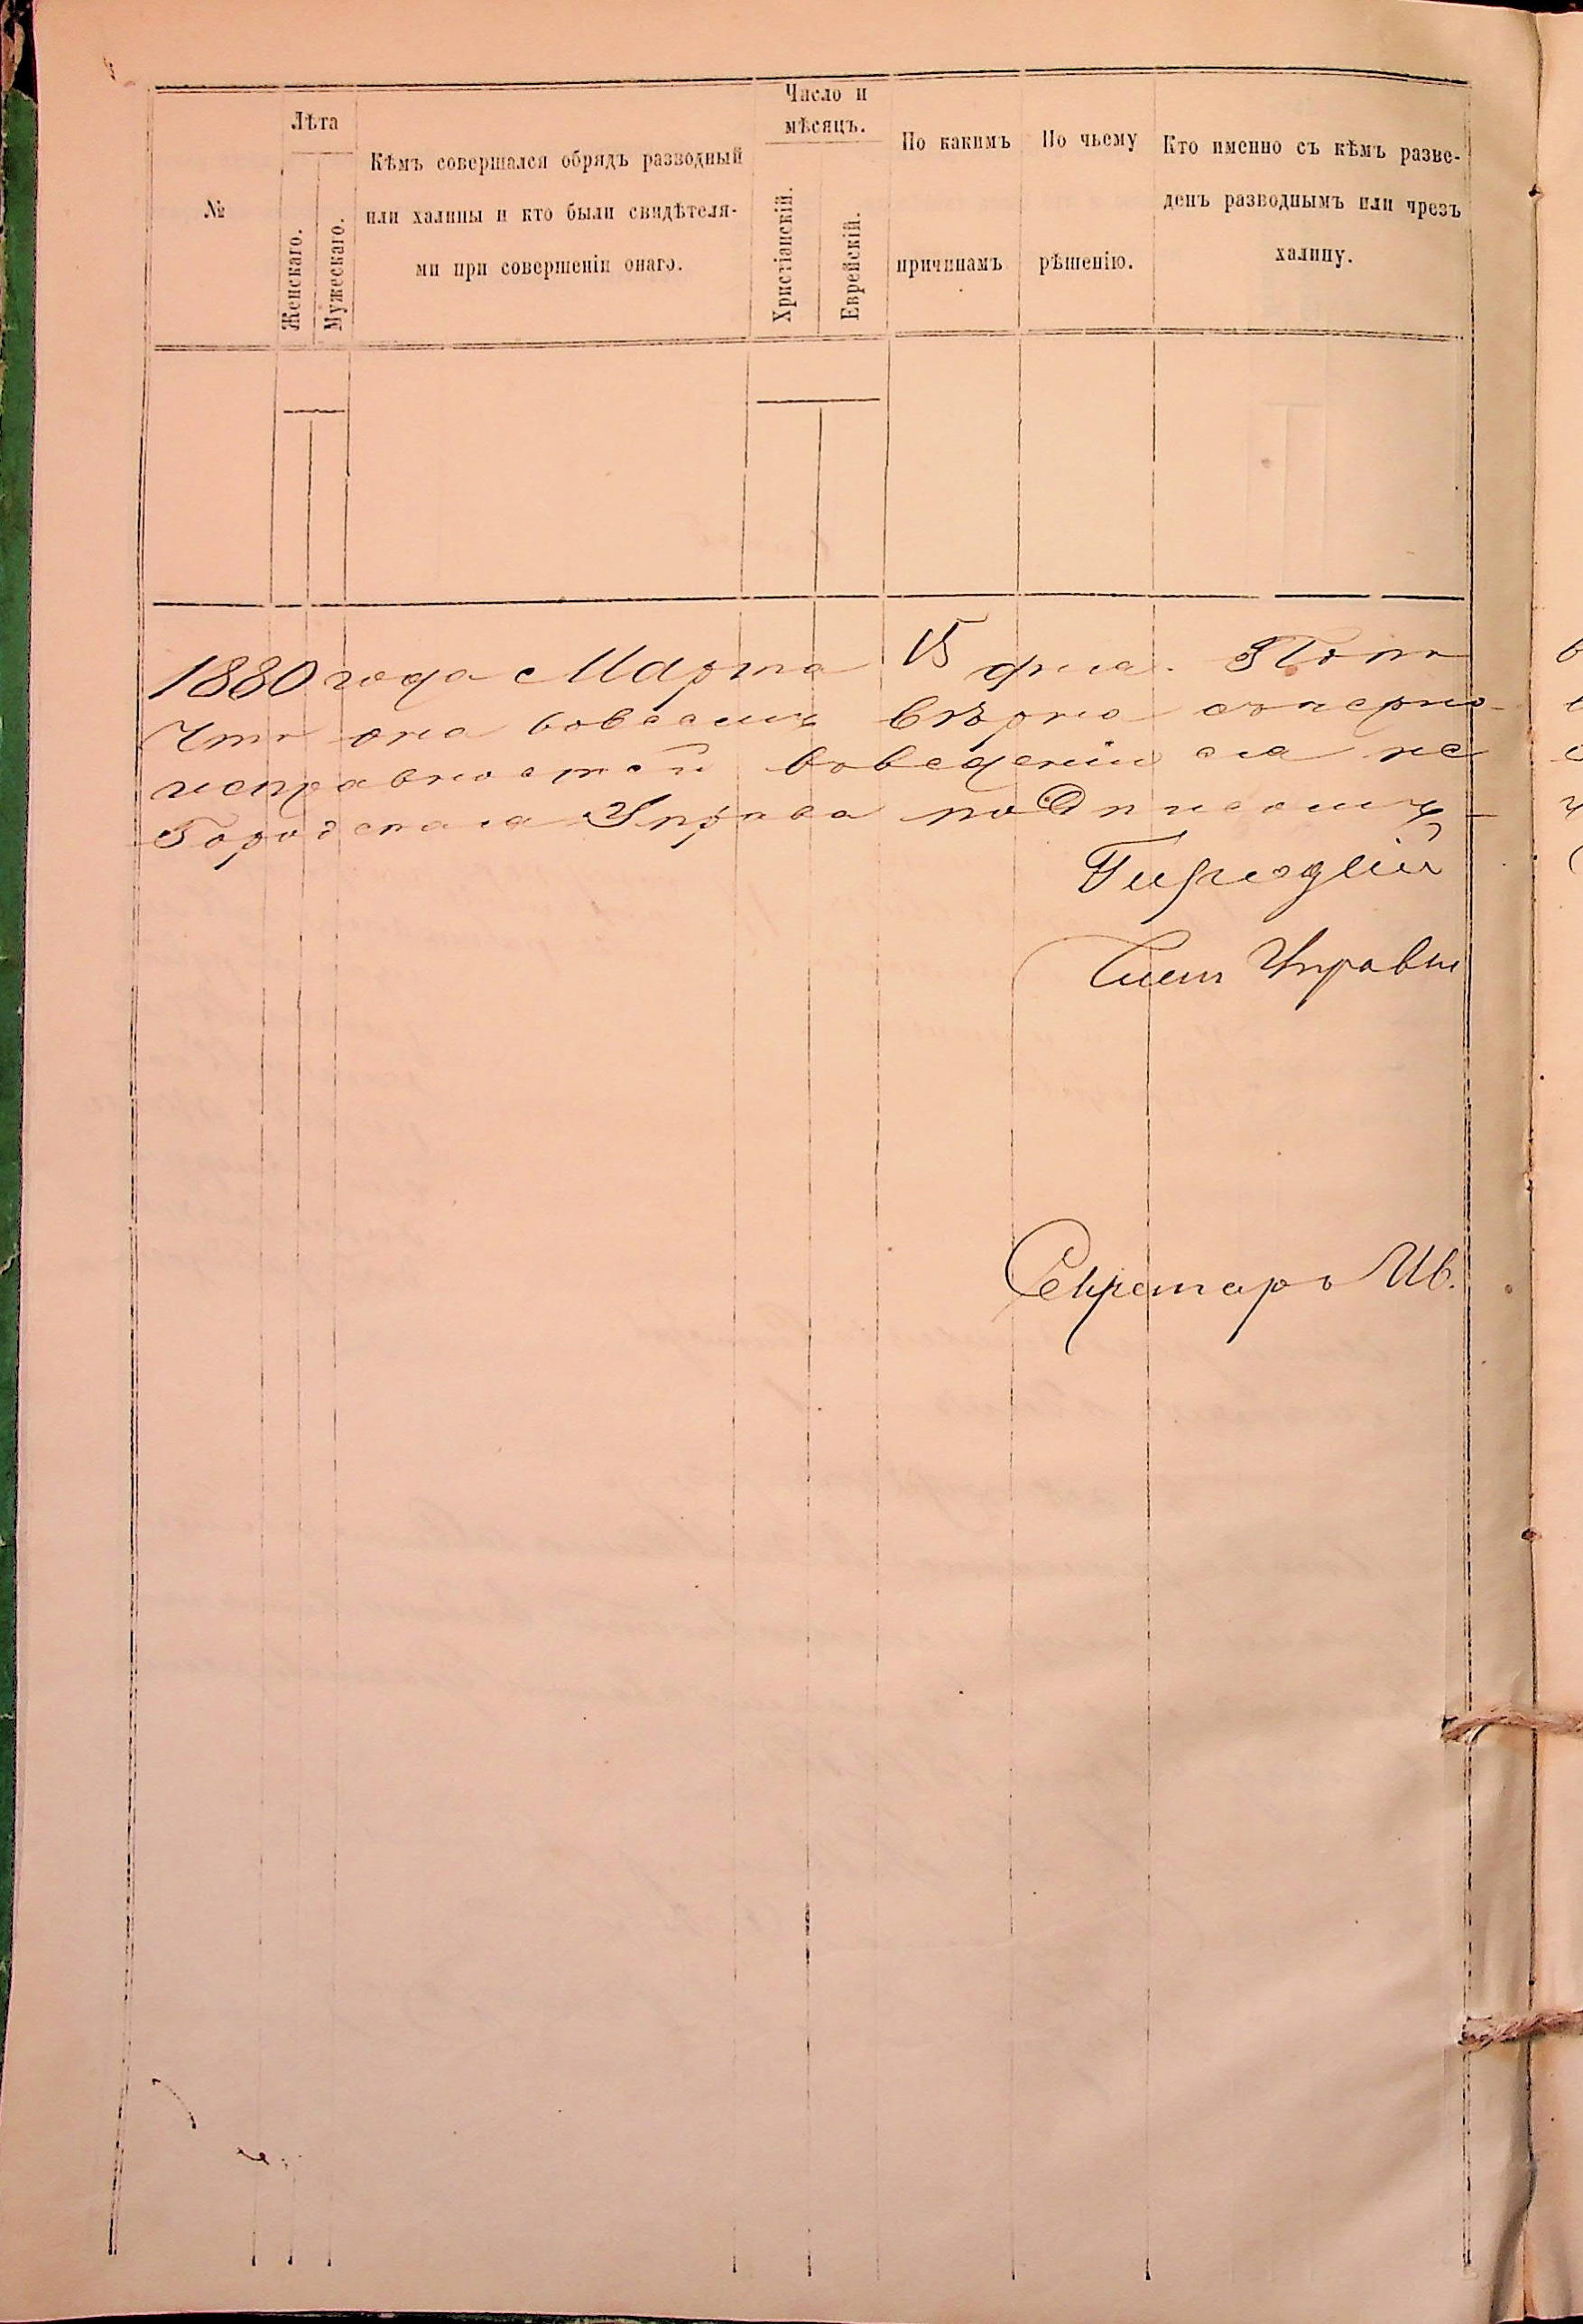 №
Лѣта
Женскаго.
Мужескаго.
Кѣмъ совершался обрядъ разводный
или халицы и кто были свидѣтеля-
ми при совершеніи онаго.
Число и
мѣсяцъ.
Христіанскій.
Еврейскій.
По какимъ
причинамъ
По чьему
рѣшенію.
Кто именно съ кѣмъ разве-
денъ разводнымъ или чрезъ
халицу.
1880 года Марта 15 дня.
Что она вовсемъ вѣрна
исправностей воведеніи ея не
Городская Управа подписомъ
Членъ Управы
Секретарь Ив.